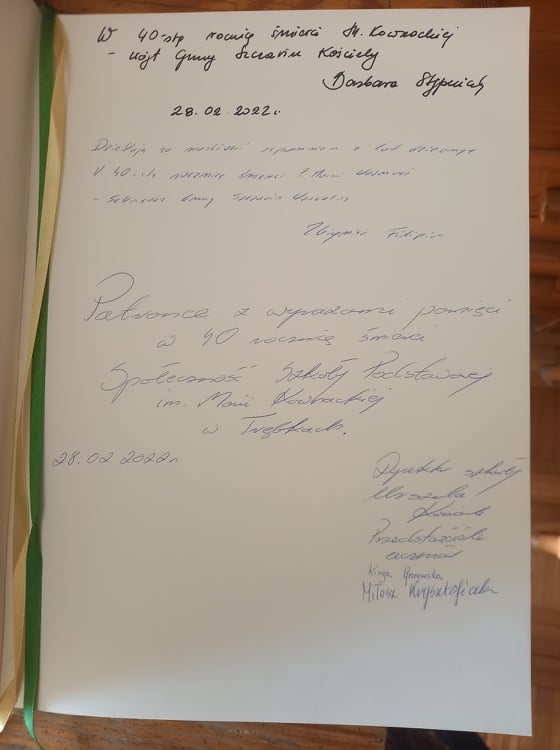 W 40-stą rocznicę śmierci M. Kownackiej
- wójt Gminy Szczawin Kościelny
Barbara Stępniak
28.02.2022r.
Dziękuję za możliwość
W 40-stą rocznicę śmierci P. Marii
- Gminy Szczawin
Zbigniew Filipiak
Patronce z wyrazami pamięci
w 40 rocznicę śmierci
Społeczność Szkoły Podstawowej
im. Marii Kownackiej
w Trębkach.
28.02.2022r.
Dyrektor szkoły
Urszula
Przedstawiciele
uczniów
Kinga Gronowska
Miłosz Krysztofiak